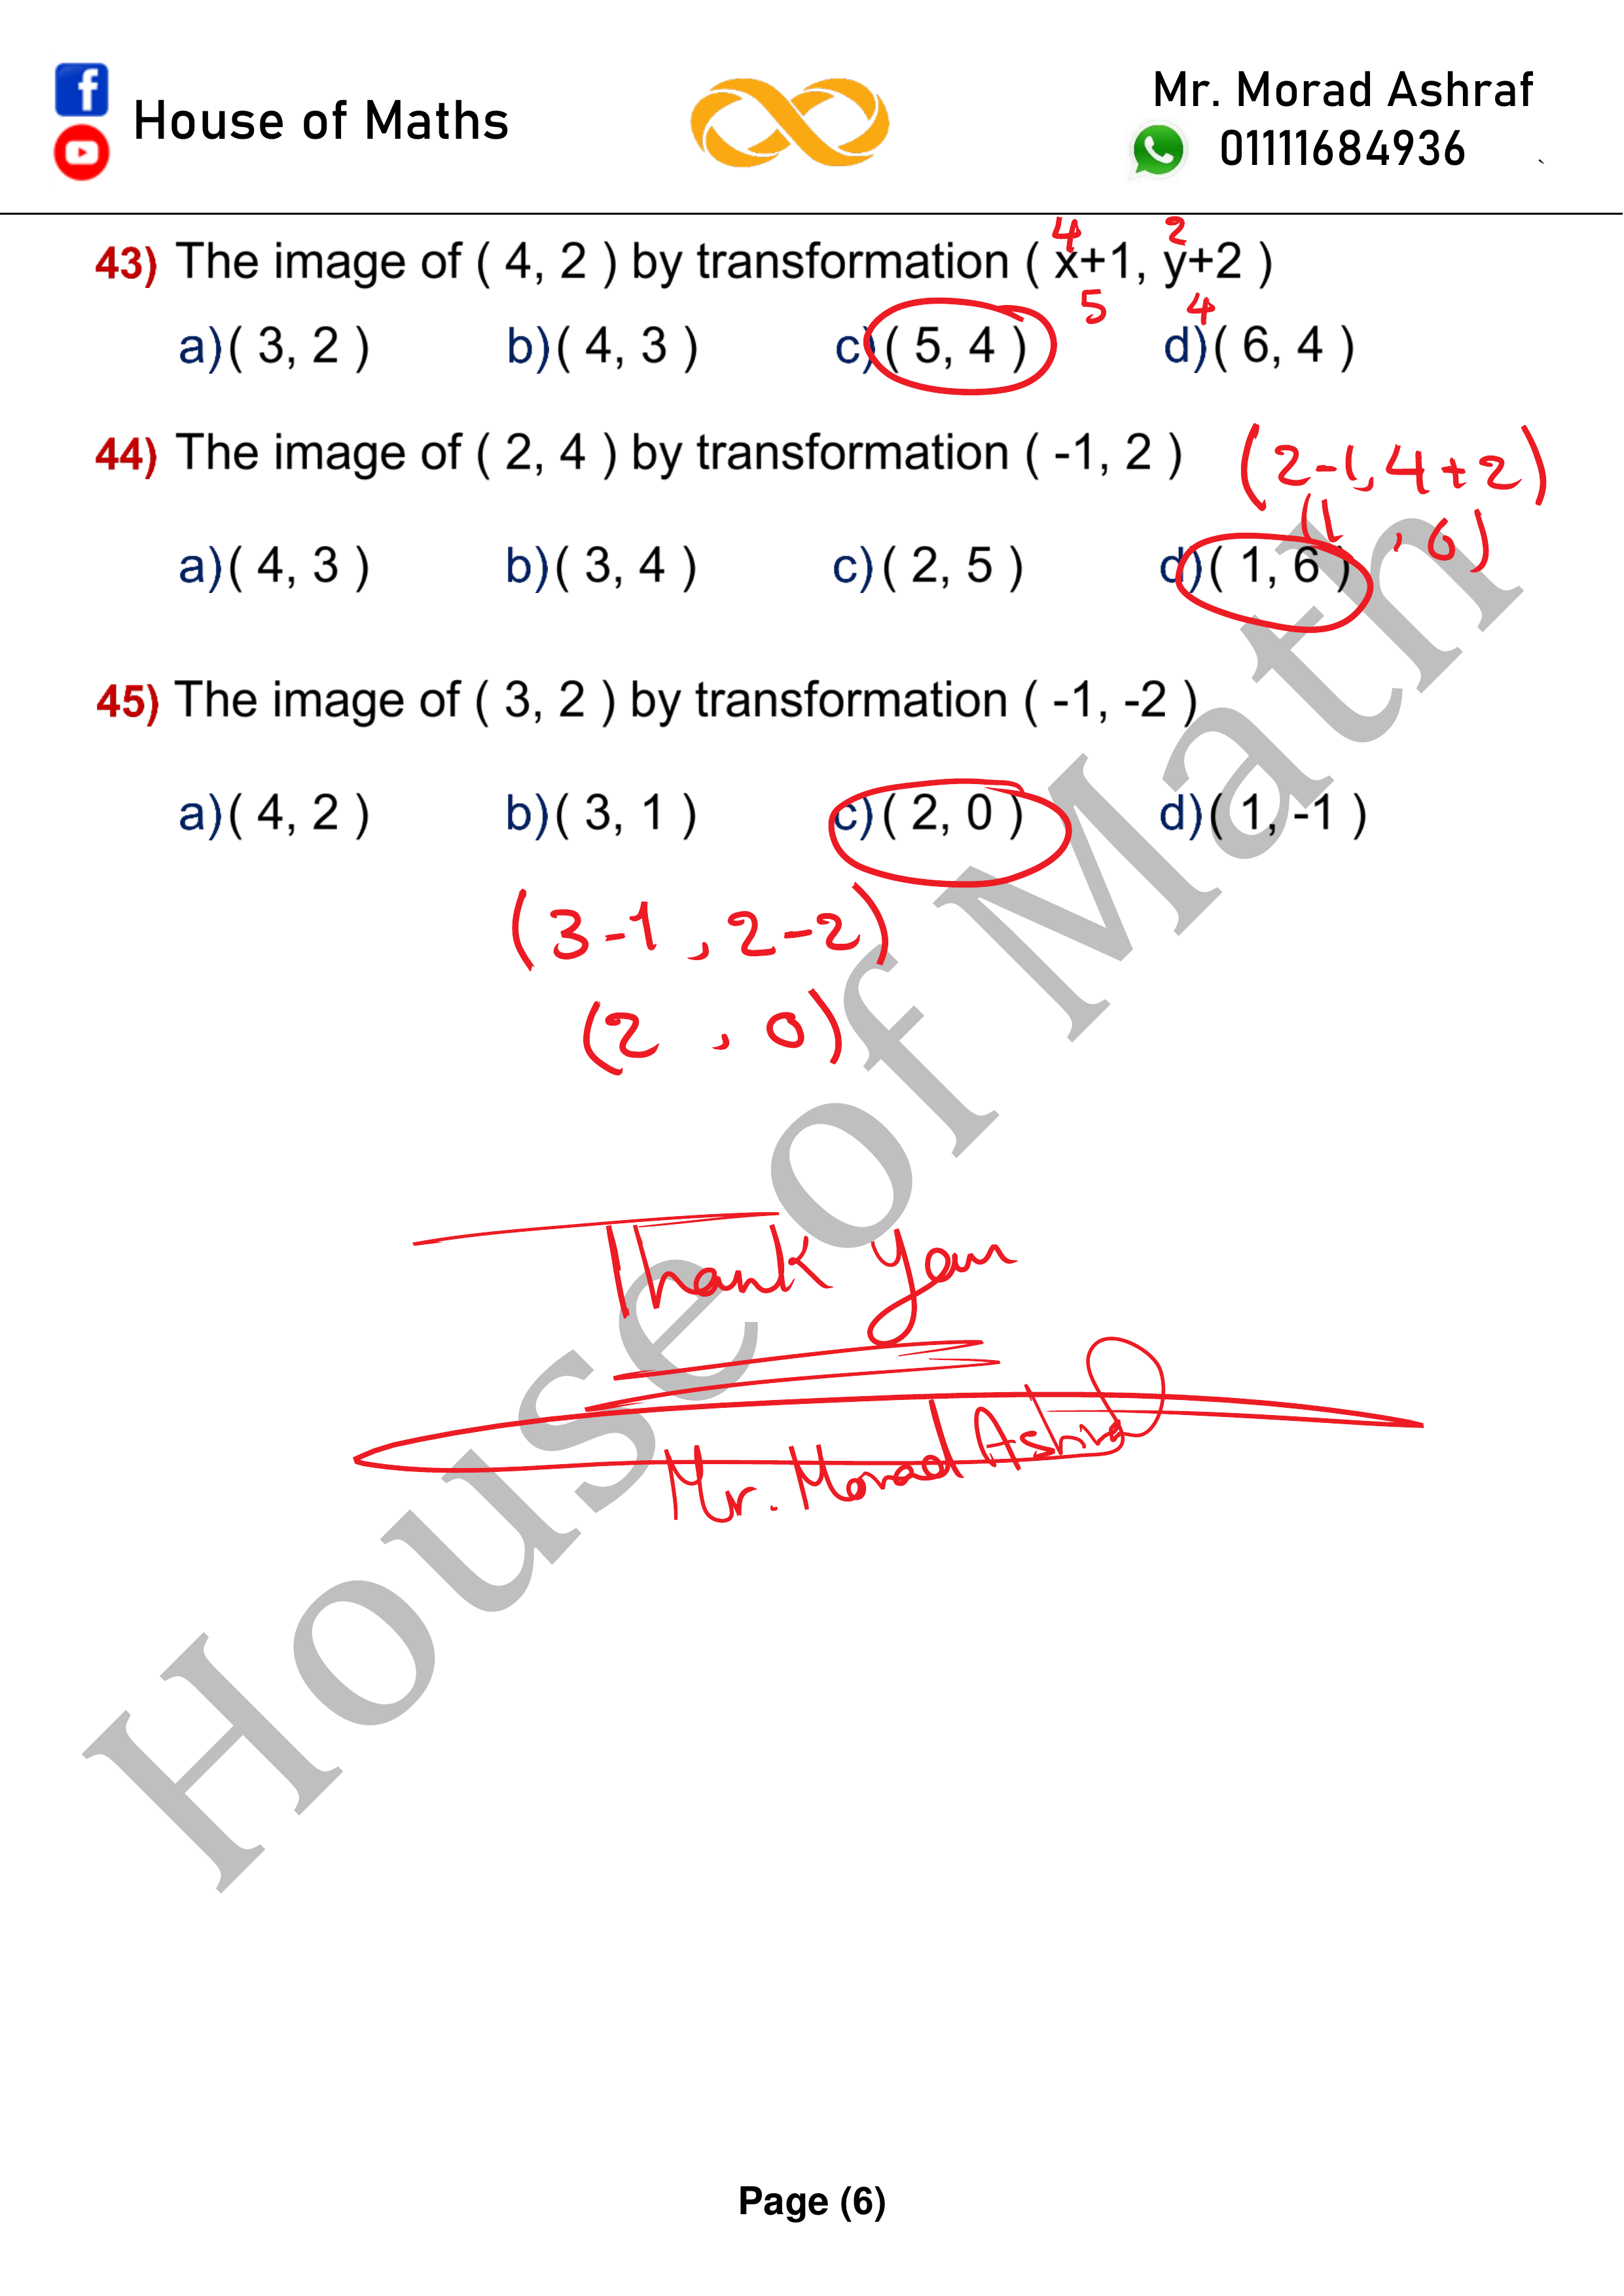 House of Maths
Mr. Morad Ashraf
01111684936
4 2
43) The image of ( 4, 2 ) by transformation ( x+1, y+2 )
5 4
a)( 3, 2 ) b)( 4, 3 ) c)( 5, 4 ) d)( 6, 4 )
44) The image of ( 2, 4 ) by transformation ( -1, 2 )
(2-1, 4+2)
(1, 6)
a)( 4, 3 ) b)( 3, 4 ) c)( 2, 5 ) d)( 1, 6 )
45) The image of ( 3, 2 ) by transformation ( -1, -2 )
a)( 4, 2 ) b)( 3, 1 ) c)( 2, 0 ) d)( 1, -1 )
(3-1, 2-2)
(2, 0)
Thank You
Mr. Morad Ashraf
House of Math
Page (6)